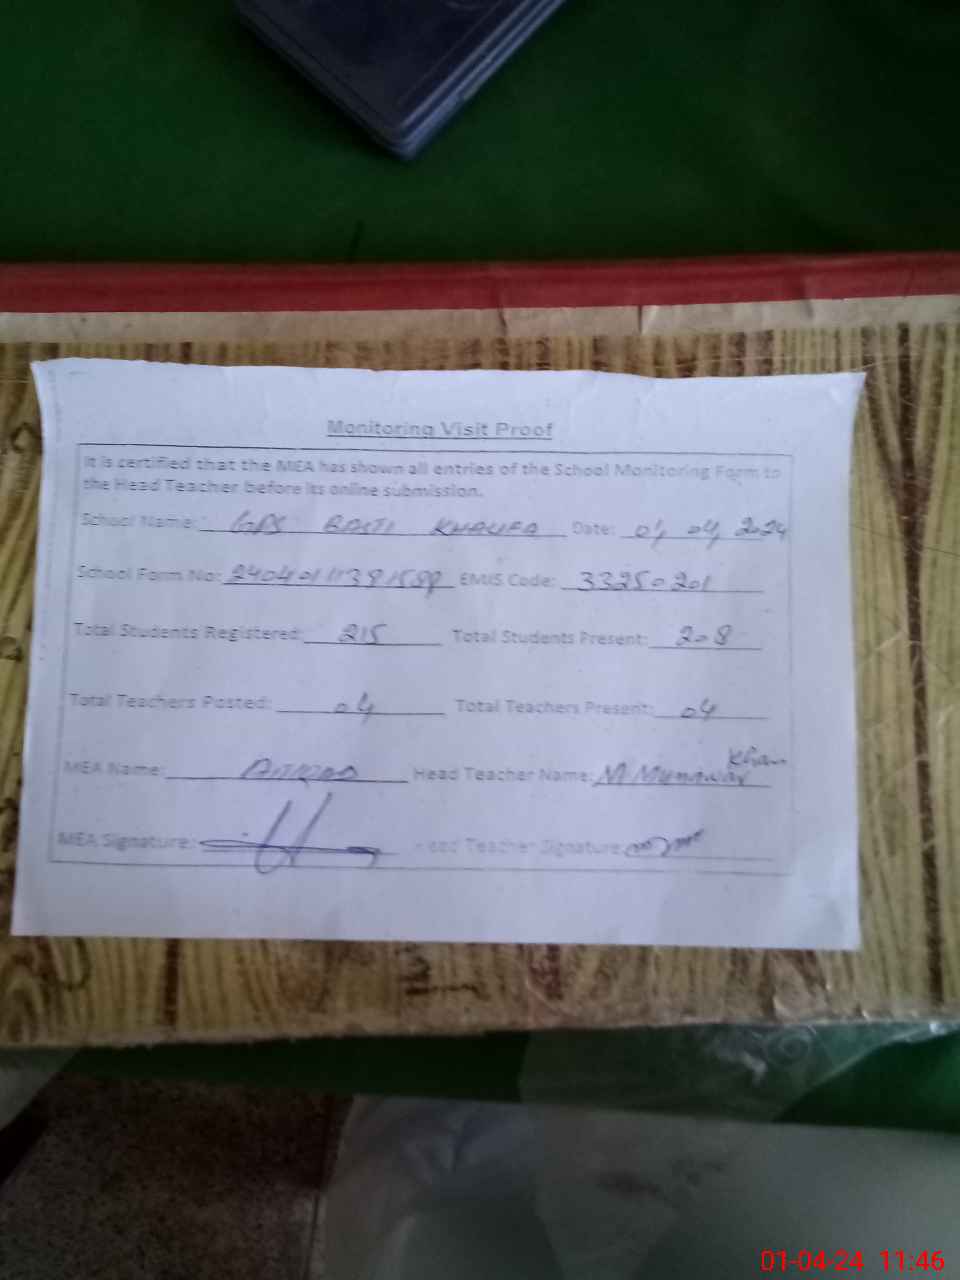 Monitoring Visit Proof
It is certified that the MEA has shown all entries of the School Monitoring Form to
the Head Teacher before its online submission.
School Name: GPS BASTI KHALIFA Date: 01, 04, 2024
School Form No: EMIS Code: 33250201
Total Students Registered: 215 Total Students Present: 208
Total Teachers Posted: 04 Total Teachers Present: 04
MEA Name: Head Teacher Name: M Munawar Khan
MEA Signature: Head Teacher Signature:
01-04-24 11:46